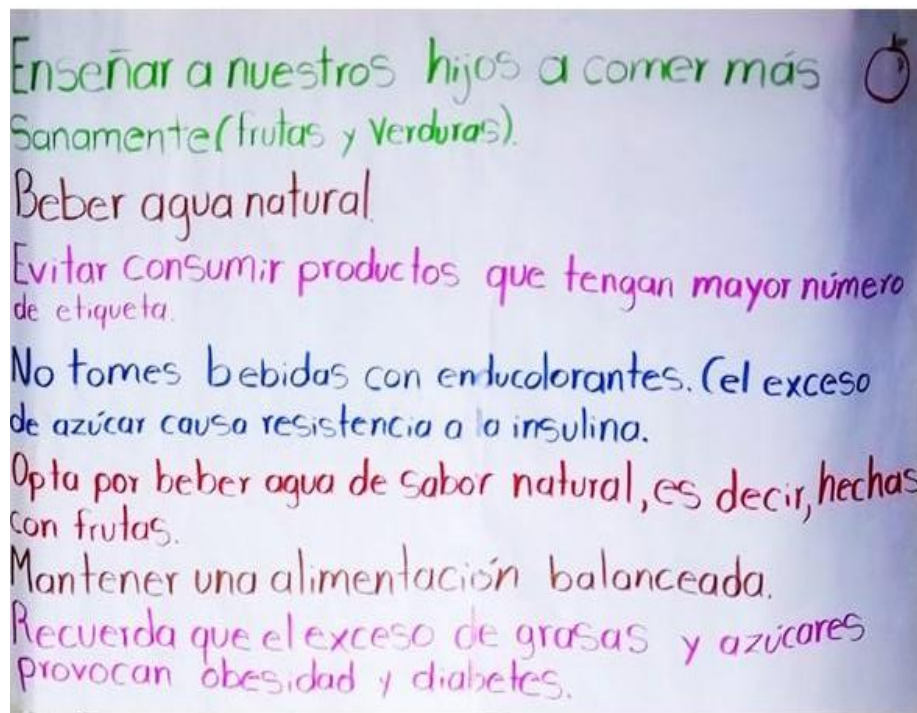 Enseñar a nuestros hijos a comer más
Sanamente (frutas y verduras).
Beber agua natural.
Evitar consumir productos que tengan mayor número
de etiqueta.
No tomes bebidas con enducolorantes. (el exceso
de azúcar causa resistencia a la insulina.
Opta por beber agua de sabor natural, es decir, hechas
con frutas.
Mantener una alimentación balanceada.
Recuerda que el exceso de grasas y azúcares
provocan obesidad y diabetes.